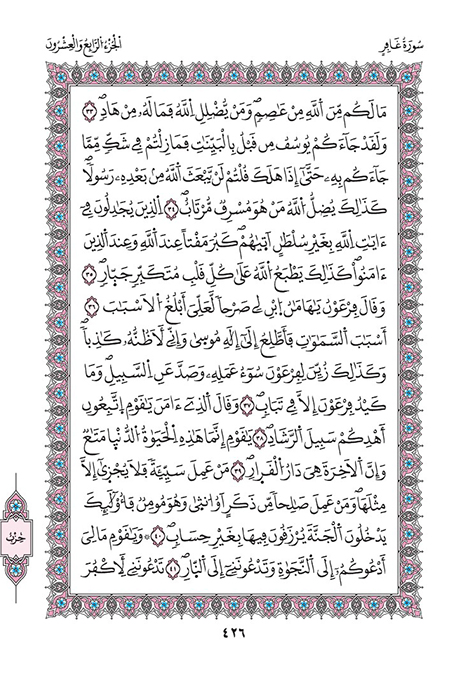 سُورَةُ غَافِرٍ
اَلْجُزْءُ الرَّابِعُ وَالْعِشْرُونَ
مَا لَكُم مِّنَ اَللَّهِ مِنْ عَاصِمٖ وَمَنْ يُّضْلِلِ اِللَّهُ فَمَا لَهُۥ مِنْ هَادٖۖ ٣٣
وَلَقَدْ جَآءَكُمْ يُوسُفُ مِن قَبْلُ بِالْبَيِّنَٰتِ فَمَا زِلْتُمْ فِے شَكّٖ مِّمَّا
جَآءَكُم بِهِۦ حَتَّىٰٓ إِذَا هَلَكَ قُلْتُمْ لَنْ يَّبْعَثَ اَللَّهُ مِنۢ بَعْدِهِۦ رَسُولاٗۖ
كَذَٰلِكَ يُضِلُّ اُللَّهُ مَنْ هُوَ مُسْرِفٞ مُّرْتَابٌۖ ٣٤ اِلذِينَ يُجَٰدِلُونَ فِےٓ
ءَايَٰتِ اِللَّهِ بِغَيْرِ سُلْطَٰنٍ أَتَىٰهُمْۖ كَبُرَ مَقْتاً عِندَ اَللَّهِ وَعِندَ اَلذِينَ
ءَامَنُواْۖ كَذَٰلِكَ يَطْبَعُ اُللَّهُ عَلَىٰ كُلِّ قَلْبِ مُتَكَبِّرٖ جَبَّارٖۖ ٣٥
وَقَالَ فِرْعَوْنُ يَٰهَٰمَٰنُ اُبْنِ لِے صَرْحاٗ لَّعَلِّيَ أَبْلُغُ اُلَاسْبَٰبَ ٣٦
أَسْبَٰبَ اَلسَّمَٰوَٰتِ فَأَطَّلِعُ إِلَىٰٓ إِلَٰهِ مُوسَىٰ وَإِنِّے لَأَظُنُّهُۥ كَٰذِباٗۖ
وَكَذَٰلِكَ زُيِّنَ لِفِرْعَوْنَ سُوٓءُ عَمَلِهِۦ وَصَدَّ عَنِ اِلسَّبِيلِۖ وَمَا
كَيْدُ فِرْعَوْنَ إِلَّا فِے تَبَابٖۖ ٣٧ وَقَالَ اَلذِےٓ ءَامَنَ يَٰقَوْمِ اِتَّبِعُونِ
أَهْدِكُمْ سَبِيلَ اَلرَّشَادِۖ ٣٨ يَٰقَوْمِ إِنَّمَا هَٰذِهِ اِلْحَيَوٰةُ اُلدُّنْيَا مَتَٰعٞ
وَإِنَّ اَلَاخِرَةَ هِيَ دَارُ اُلْقَرَارِۖ ٣٩ مَنْ عَمِلَ سَيِّئَةٗ فَلَا يُجْزَىٰٓ إِلَّا
مِثْلَهَاۖ وَمَنْ عَمِلَ صَٰلِحاٗ مِّن ذَكَرٍ أَوُ ا۟نثَىٰ وَهُوَ مُومِنٞ فَأُوْلَٰٓئِكَ
يَدْخُلُونَ اَلْجَنَّةَ يُرْزَقُونَ فِيهَا بِغَيْرِ حِسَابٖۖ ٤٠ وَيَٰقَوْمِ مَا لِيَ
أَدْعُوكُمُۥٓ إِلَى اَلنَّجَوٰةِ وَتَدْعُونَنِےٓ إِلَى اَلنَّارِۖ ٤١ تَدْعُونَنِے لِأَكْفُرَ
حِزْبٌ
٤٢٦